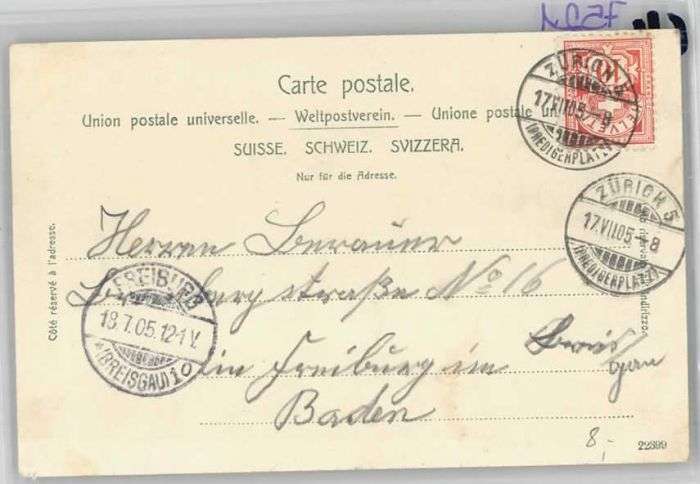 Carte postale.
Union postale universelle. — Weltpostverein. — Unione postale
SUISSE. SCHWEIZ. SVIZZERA.
Nur für die Adresse.
Côté réservé à l'adresse.
ZÜRICH 5
17.VII.05.-8
(PREDIGERPLATZ)
ZÜRICH 5
17.VII.05.-8
(PREDIGERPLATZ)
FREIBURG
18.7.05.12-1V.
(BREISGAU) 10
Herren
straße No 16
in Freiburg im
Baden
8,-
22399